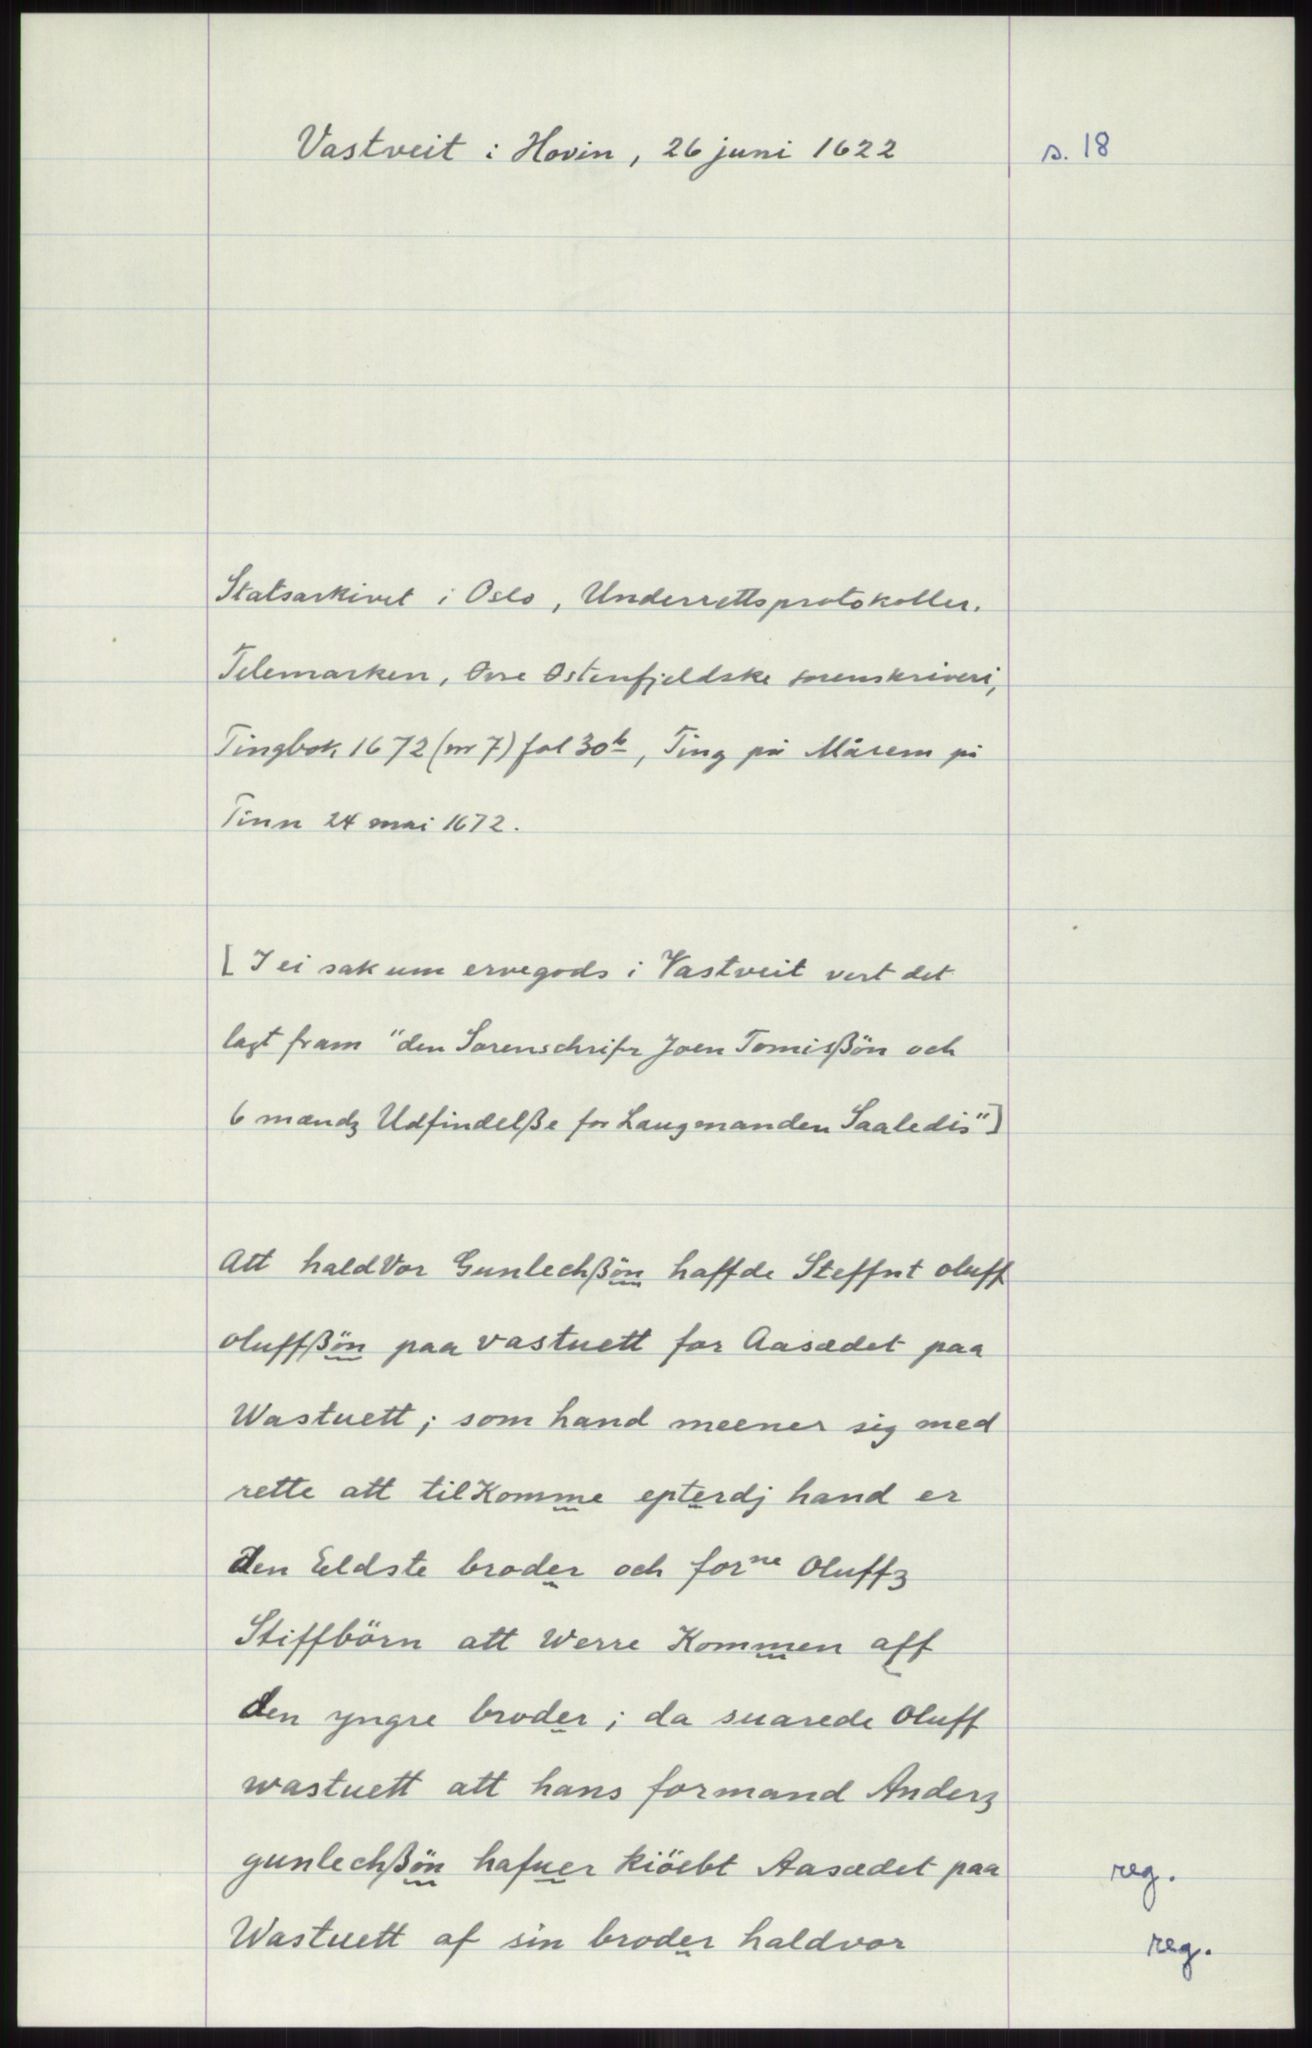 Vastveit i Hovin, 26 juni 1622
s. 18
Statsarkivet i Oslo, Underrettsprotokoller.
Telemarken, Øvre Østenfjeldske sorenskriveri,
Tingbok 1672 (nr 7) fol 30b, Ting på Mårem på
Tinn 24 mai 1672.
[I ei sak um ervegods i Vastveit vert det
lagt fram "den Sorenschrifr Joen Tomisßön och
6 mændz Udfindelße for Laugmanden Saaledis"]
Att haldVor Gunlechßön haffde Steffnt oluff
oluffßön paa vastuett for Aasædet paa
Wastuett; som hand meener sig med
rette att tilKomme epterdj hand er
den Eeldste broder och forne Oluffz
Stiffbörn att Werre Kommen aff
den yngre broder; da suarede Oluff
wastuett att hans formand Anderz
gunlechßön hafuer kiöebt Aasædet paa
reg.
Wastuett af sin broder haldvor
reg.